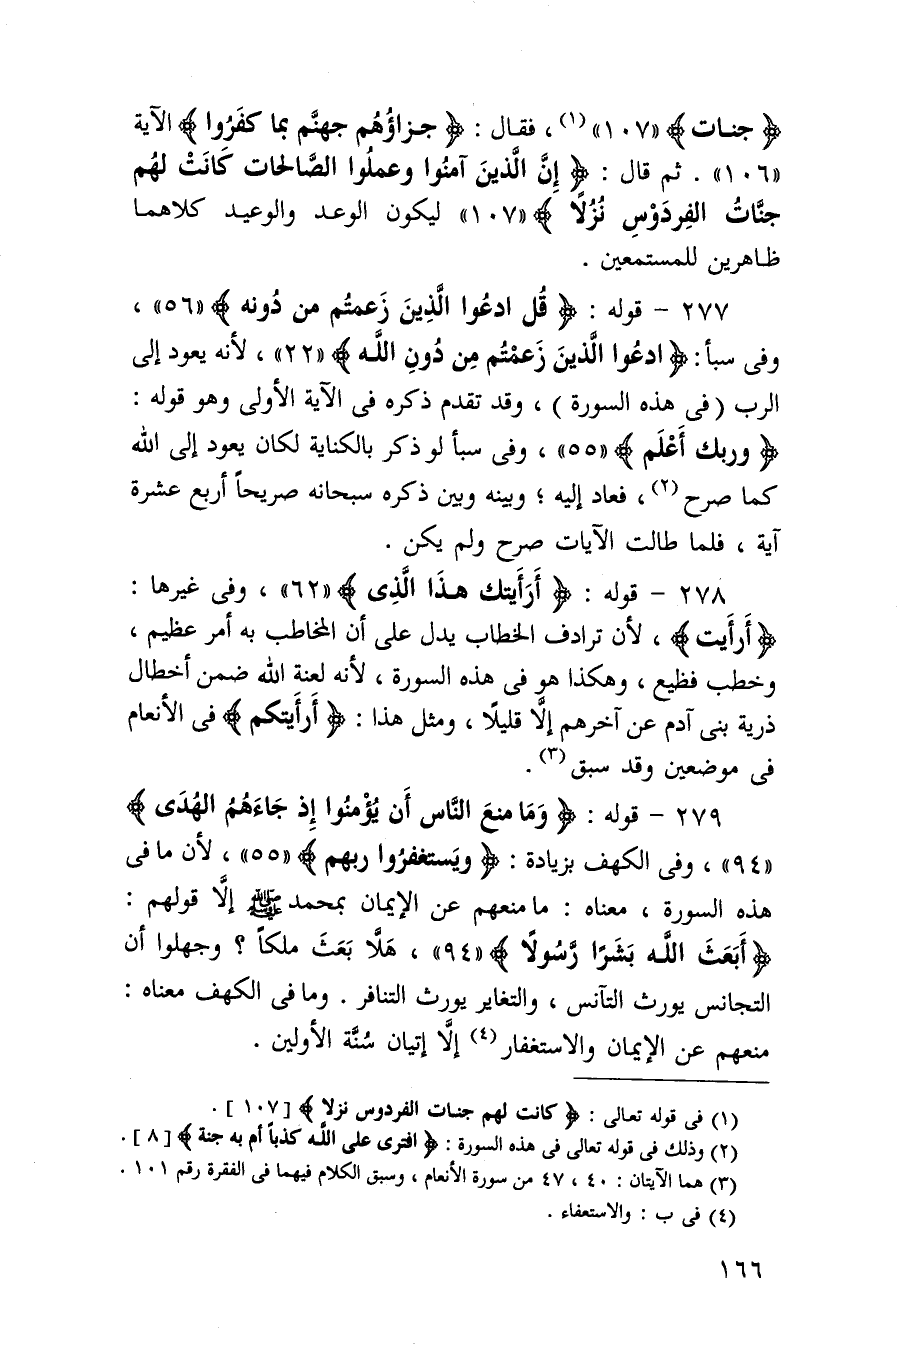 ﴿ جنـات ﴾ «١٠٧»(١) ، فقـال : ﴿ جـزاؤُهُم جهنَّم بما كفَرُوا ﴾ الآية
«١٠٦» . ثم قال : ﴿ إنَّ الَّذينَ آمنُوا وعملُوا الصَّالحات كَانَتْ لهُم
جنَّاتُ الفِردَوْسِ نُزُلًا ﴾ «١٠٧» ليكون الوعـد والوعيـد كلاهمـا
ظـاهرين للمستمعين .
٢٧٧ – قوله : ﴿ قُل ادعُوا الَّذِينَ زَعمتُم من دُونه ﴾ «٥٦» ،
وفى سبأ : ﴿ ادعُوا الَّذينَ زَعمْتُم مِن دُونِ اللَّـه ﴾ «٢٢» ، لأنه يعود إلى
الرب ( فى هذه السورة ) ، وقد تقدم ذكره فى الآية الأولى وهو قوله :
﴿ وربك أَعْلَم ﴾ «٥٥» ، وفى سبأ لو ذكر بالكناية لكان يعود إلى الله
كما صرح(٢) ، فعاد إليه ؛ وبينه وبين ذكره سبحانه صريحاً أربع عشرة
آية ، فلما طالت الآيات صرح ولم يكن .
٢٧٨ – قوله : ﴿ أَرَأَيتك هـذَا الَّذِى ﴾ «٦٢» ، وفى غيرها :
﴿ أَرأَيت ﴾ ، لأن ترادف الخطاب يدل على أن المخاطب به أمر عظيم ،
وخطب فظيع ، وهكذا هو فى هذه السورة ، لأنه لعنة الله ضمن أخطال
ذرية بنى آدم عن آخرهم إلَّا قليلًا ، ومثل هذا : ﴿ أَرأَيتكم ﴾ فى الأنعام
فى موضعين وقد سبق(٣) .
٢٧٩ – قوله : ﴿ وَمَا منعَ النَّاس أَن يُؤْمنُوا إِذ جَاءَهُمُ الهُدَى ﴾
«٩٤» ، وفى الكهف بزيادة : ﴿ ويَستغفرُوا ربهم ﴾ «٥٥» ، لأن ما فى
هذه السورة ، معناه : ما منعهم عن الإيمان بمحمد ﷺ إلَّا قولهم :
﴿ أَبَعَثَ اللَّـه بَشَرًا رَّسُولًا ﴾ «٩٤» ، هَلَّا بَعَثَ ملكاً ؟ وجهلوا أن
التجانس يورث التآنس ، والتغاير يورث التنافر . وما فى الكهف معناه :
منعهم عن الإيمان والاستغفار(٤) إلَّا إتيان سُنَّة الأولين .
(١) فى قوله تعالى : ﴿ كانت لهم جنـات الفردوس نزلا ﴾ [ ١٠٧ ] .
(٢) وذلك فى قوله تعالى فى هذه السورة : ﴿ افترى على اللَّـه كذباً أم به جنة ﴾ [ ٨ ] .
(٣) هما الآيتان : ٤٠ ، ٤٧ من سورة الأنعام ، وسبق الكلام فيهما فى الفقرة رقم ١٠١ .
(٤) فى ب : والاستعفاء .
١٦٦